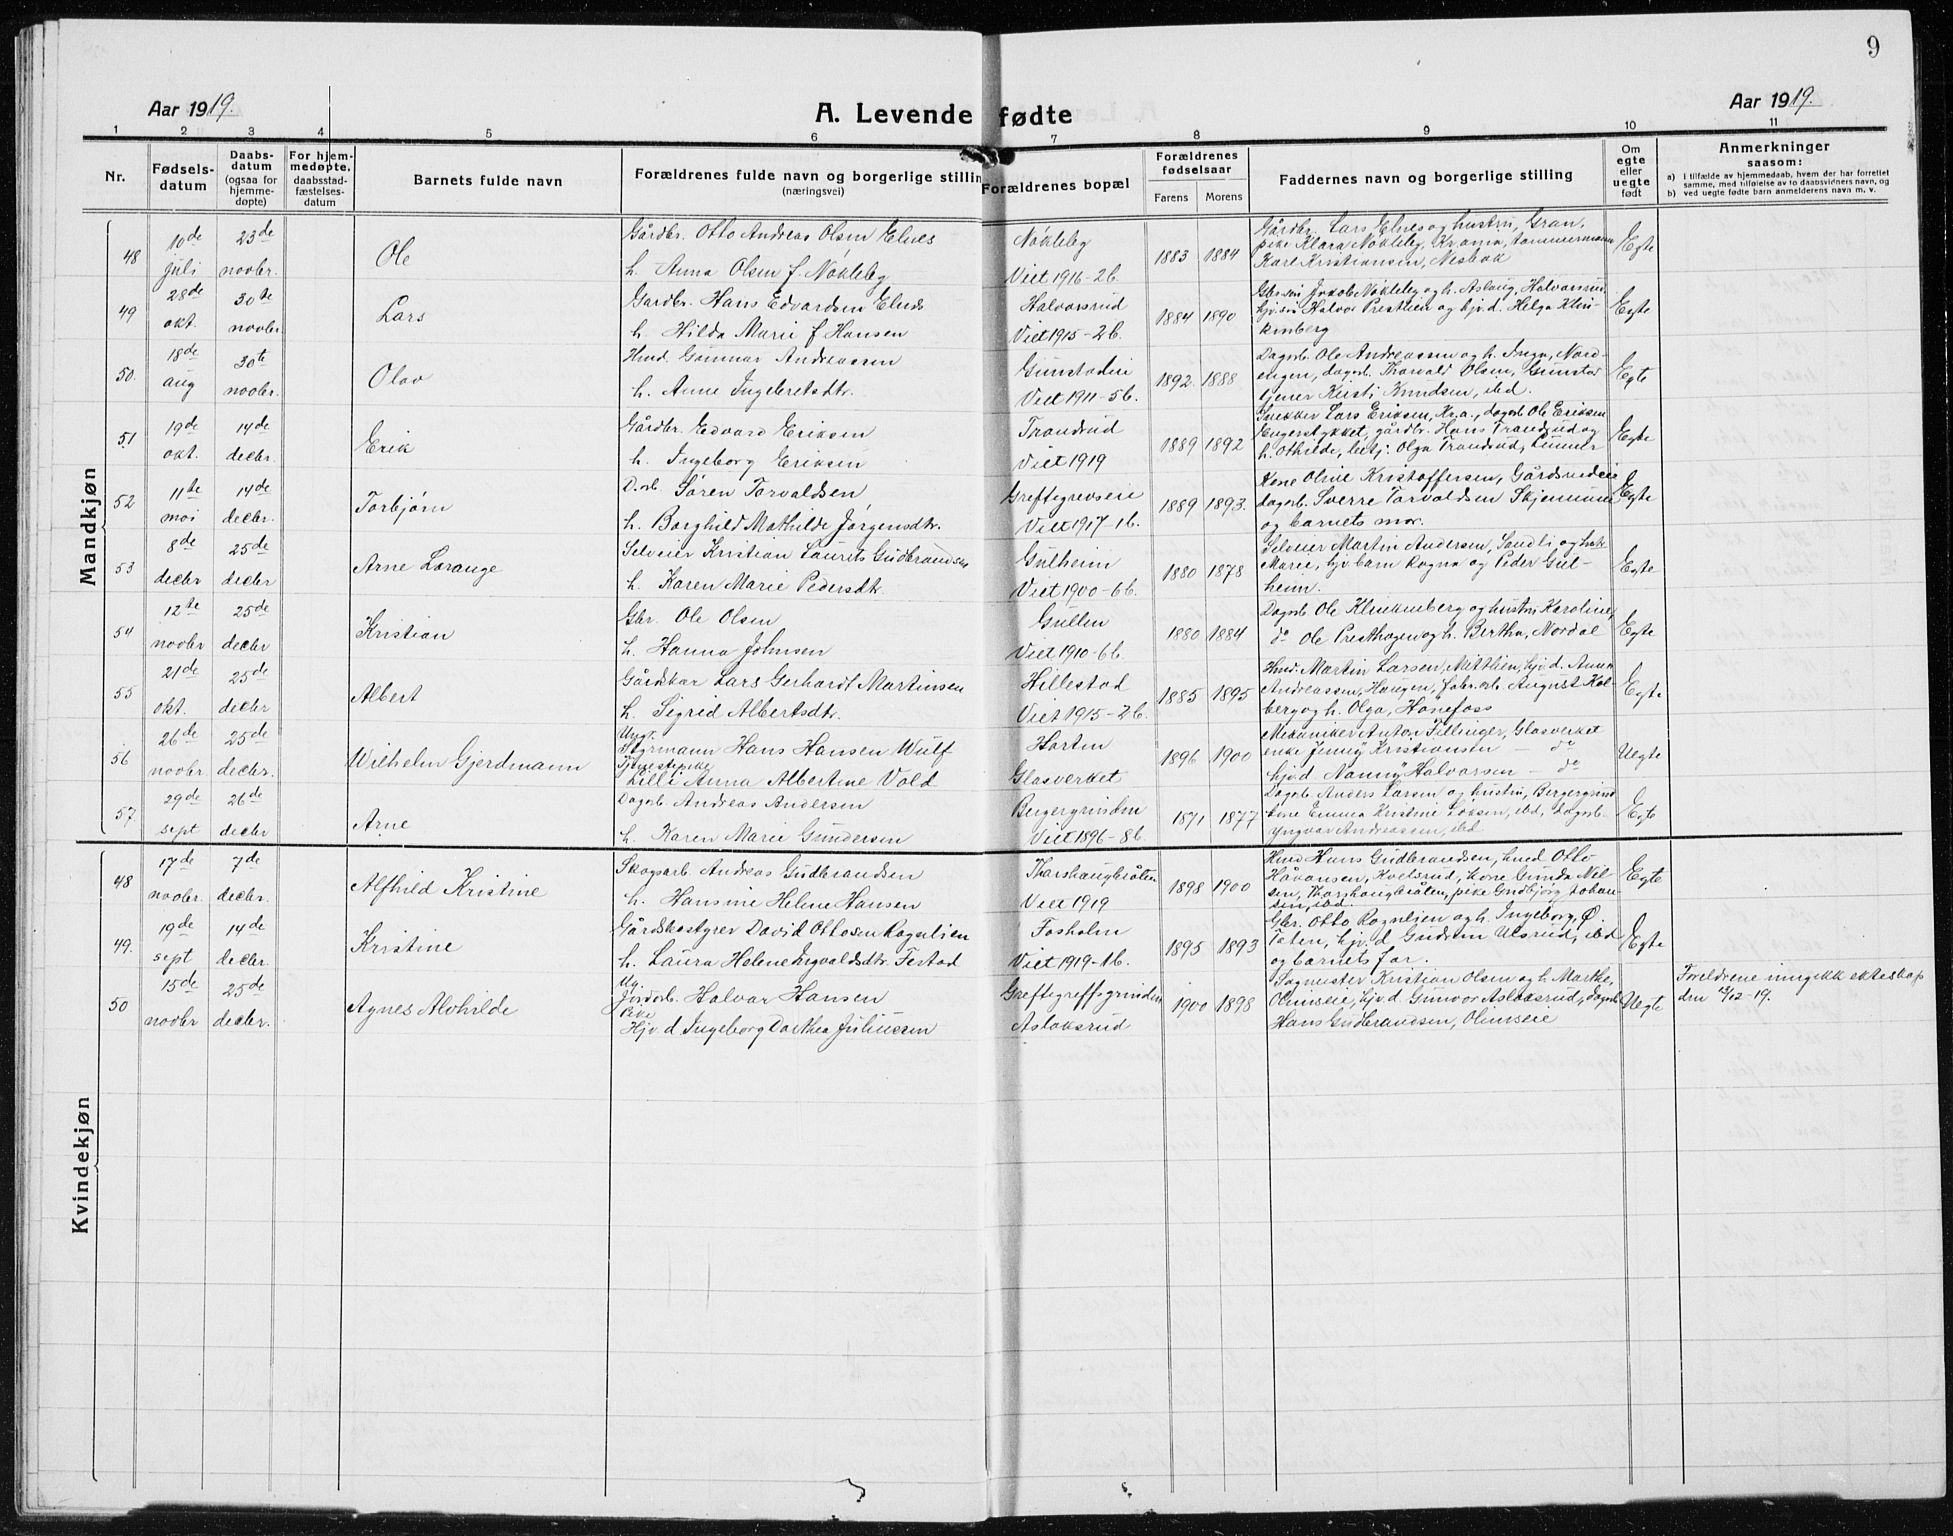 9
Aar 1919.
A. Levende fødte
Aar 1919.
1 2 3 4 5 6 7 8 9 10 11
Nr.
Fødsels-
datum
Daabs-
datum
(ogsaa for
hjemme-
døpte)
For hjem-
medøpte,
daabsstad-
fæstelses-
datum
Barnets fulde navn
Forældrenes fulde navn og borgerlige stilling
(næringsvei)
Forældrenes bopæl
Forældrenes
fødselsaar
Farens Morens
Faddernes navn og borgerlige stilling
Om
egte
eller
uegte
født
Anmerkninger
saasom:
a) i tilfælde av hjemmedaab, hvem der har forrettet
samme, med tilføielse av to daabsvidners navn, og
b) ved uegte fødte barn anmelderens navn m. v.
Mandkjøn
48 10de juli 23de novbr. Ole
Gårdbr. Otto Andreas Olsen Elnes
h. Anna Olsen f. Nøkleby
Nøkleby
Viet 1916-2b.
1883 1884
Gårdbr. Lars Elnes og hustru, Gran,
pike Klara Nøkleby, Kr.ania, tømmermann
Karl Kristiansen, Nesbak
Egte
49 28de okt. 30te novbr. Lars
Gardbr. Hans Edvardsen Elnes
h. Hilda Marie f Hansen
Halvorsrud
Viet 1915-2b.
1884 1890
Gbr.søn Jakob Nøkleby og h. Aslaug, Halvorsrud,
hjv.søn Halvor Prestlien og hjv.d. Helga Klin-
kenberg
Egte
50. 18de aug 30te novbr. Olav
Hmd. Gunnar Andreassen
h. Anne Ingebretsdtr.
Gunstadeie
Viet 1911-5b.
1892. 1888
Dagarb. Ole Andreassen og h. Inga, Nord-
engen, dagarb. Thorvald Olsen, Gunstad
tjener Kirsti Knudsen, ibd.
Egte
51 19de okt. 14de decbr. Erik
Gårdbr. Edvard Eriksen
h. Ingeborg Eriksen
Trandrud
Viet 1919
1889 1892
Snekker Lars Eriksen, Kr.a., dagarb Ole Eriksen
Engerstykket, gårdbr. Hans Trandrud og
h. Othilde, betj. Olga Trandrud, Lunner
Egte
52 11te mai 14de decbr. Torbjørn
D.arb. Søren Torvaldsen
h. Borghild Mathilde Jørgensdtr.
Greftegrevseie
Viet 1917-1b.
1889 1893.
Kone Oline Kristoffersen, Gårdsrudeie
dagarb. Sverre Torvaldsen Skjennum
og barnets mor.
Egte
53 8de decbr 25de decbr Arne Lorange
Selveier Kristian Laurits Gudbrandsen
h. Karen Marie Pedersdtr.
Gulheim
Viet 1900-6b.
1880 1878
Selveier Martin Andersen, Sandli og h.
Marie, hjv.barn Ragna og Peder Gul-
heim.
Egte
54 12te novbr 25de decbr Kristian
Gbr. Ole Olsen
h. Hanna Johnsen
Gullen
Viet 1910-6b.
1880 1884
Dagarb. Ole Klinkenberg og hustru Karoline,
do Ole Presthagen og h. Bertha, Nordal
Egte
55 21de okt. 25de decbr Albert
Gårdskar Lars Gerhardt Martinsen
h. Sigrid Albertsdtr.
Hillestad
Viet 1915-2b.
1885 1895
Hmd. Martin Larsen, Nittlien, hjv.d. Anna
Andreassen, Haugen, fabr.arb. August Kol-
berg og h. Olga, Hønefoss
Egte
56 26de novbr. 25de decbr. Wilhelm Gjerdmann
Ungk.
Styrmann Hans Hansen Wulf
Tjenestepike
Lilli Anna Albertine Vold
Horten
Glasverket
1896 1900
Mekaniker Anton Fillinger, Glasverket
enke Jenny Kristiansen — do
hjv.d Nanny Halvorsen — do
Uegte
57. 29de sept 26de decbr Arne
Dagarb Andreas Andersen
h. Karen Marie Gundersen
Bergergrinden
Viet 1896-8b.
1871 1877
Dagarb. Anders Larsen og hustru, Bergergrind
kone Emma Kristine Løksen, ibd, Dagarb.
Yngvar Andreassen, ibd.
Egte
Kvindekjøn
48 17de novbr. 7de decbr. Alfhild Kristine
Skogsarb. Andreas Gudbrandsen
h. Hansine Helene Hansen
Thorshaugbråten
Viet 1919
1898 1900
Hmd Hans Gudbrandsen, hmd Otto
Håvansen, Kvelsrud, kone Gunda Nil-
sen, Thorshaugbråten, pike Gudbjørg Johan-
sen, ibd.
Egte
49. 19de sept 14de decbr. Kristine
Gårdsbestyrer David Ottosen Rognlien
h. Laura Helene Ingvaldsdtr. Festad
Fosholm
Viet 1919-1b.
1895 1893
Gbr. Otto Rognlien og h. Ingeborg, Ø.
Toten, hjv. d Gudrun Ulsrud, ibd
og barnets far.
Egte
50 15de novbr 25de decbr. Agnes Alvhilde
Ug.
Jordarb. Halvor Hansen
Pike
Hjv. d Ingeborg Dorthea Juliussen
Greftegreffsgrinden
Aslaksrud
1900 1898
Sagmester Kristian Olsen og h. Marthe,
Olimseie, hjv.d. Gunvor Aslaksrud, dagarb
Hans Gudbrandsen, Olimseie
Uegte
Foreldrene inngikk ekteskap
den 12/12-19.